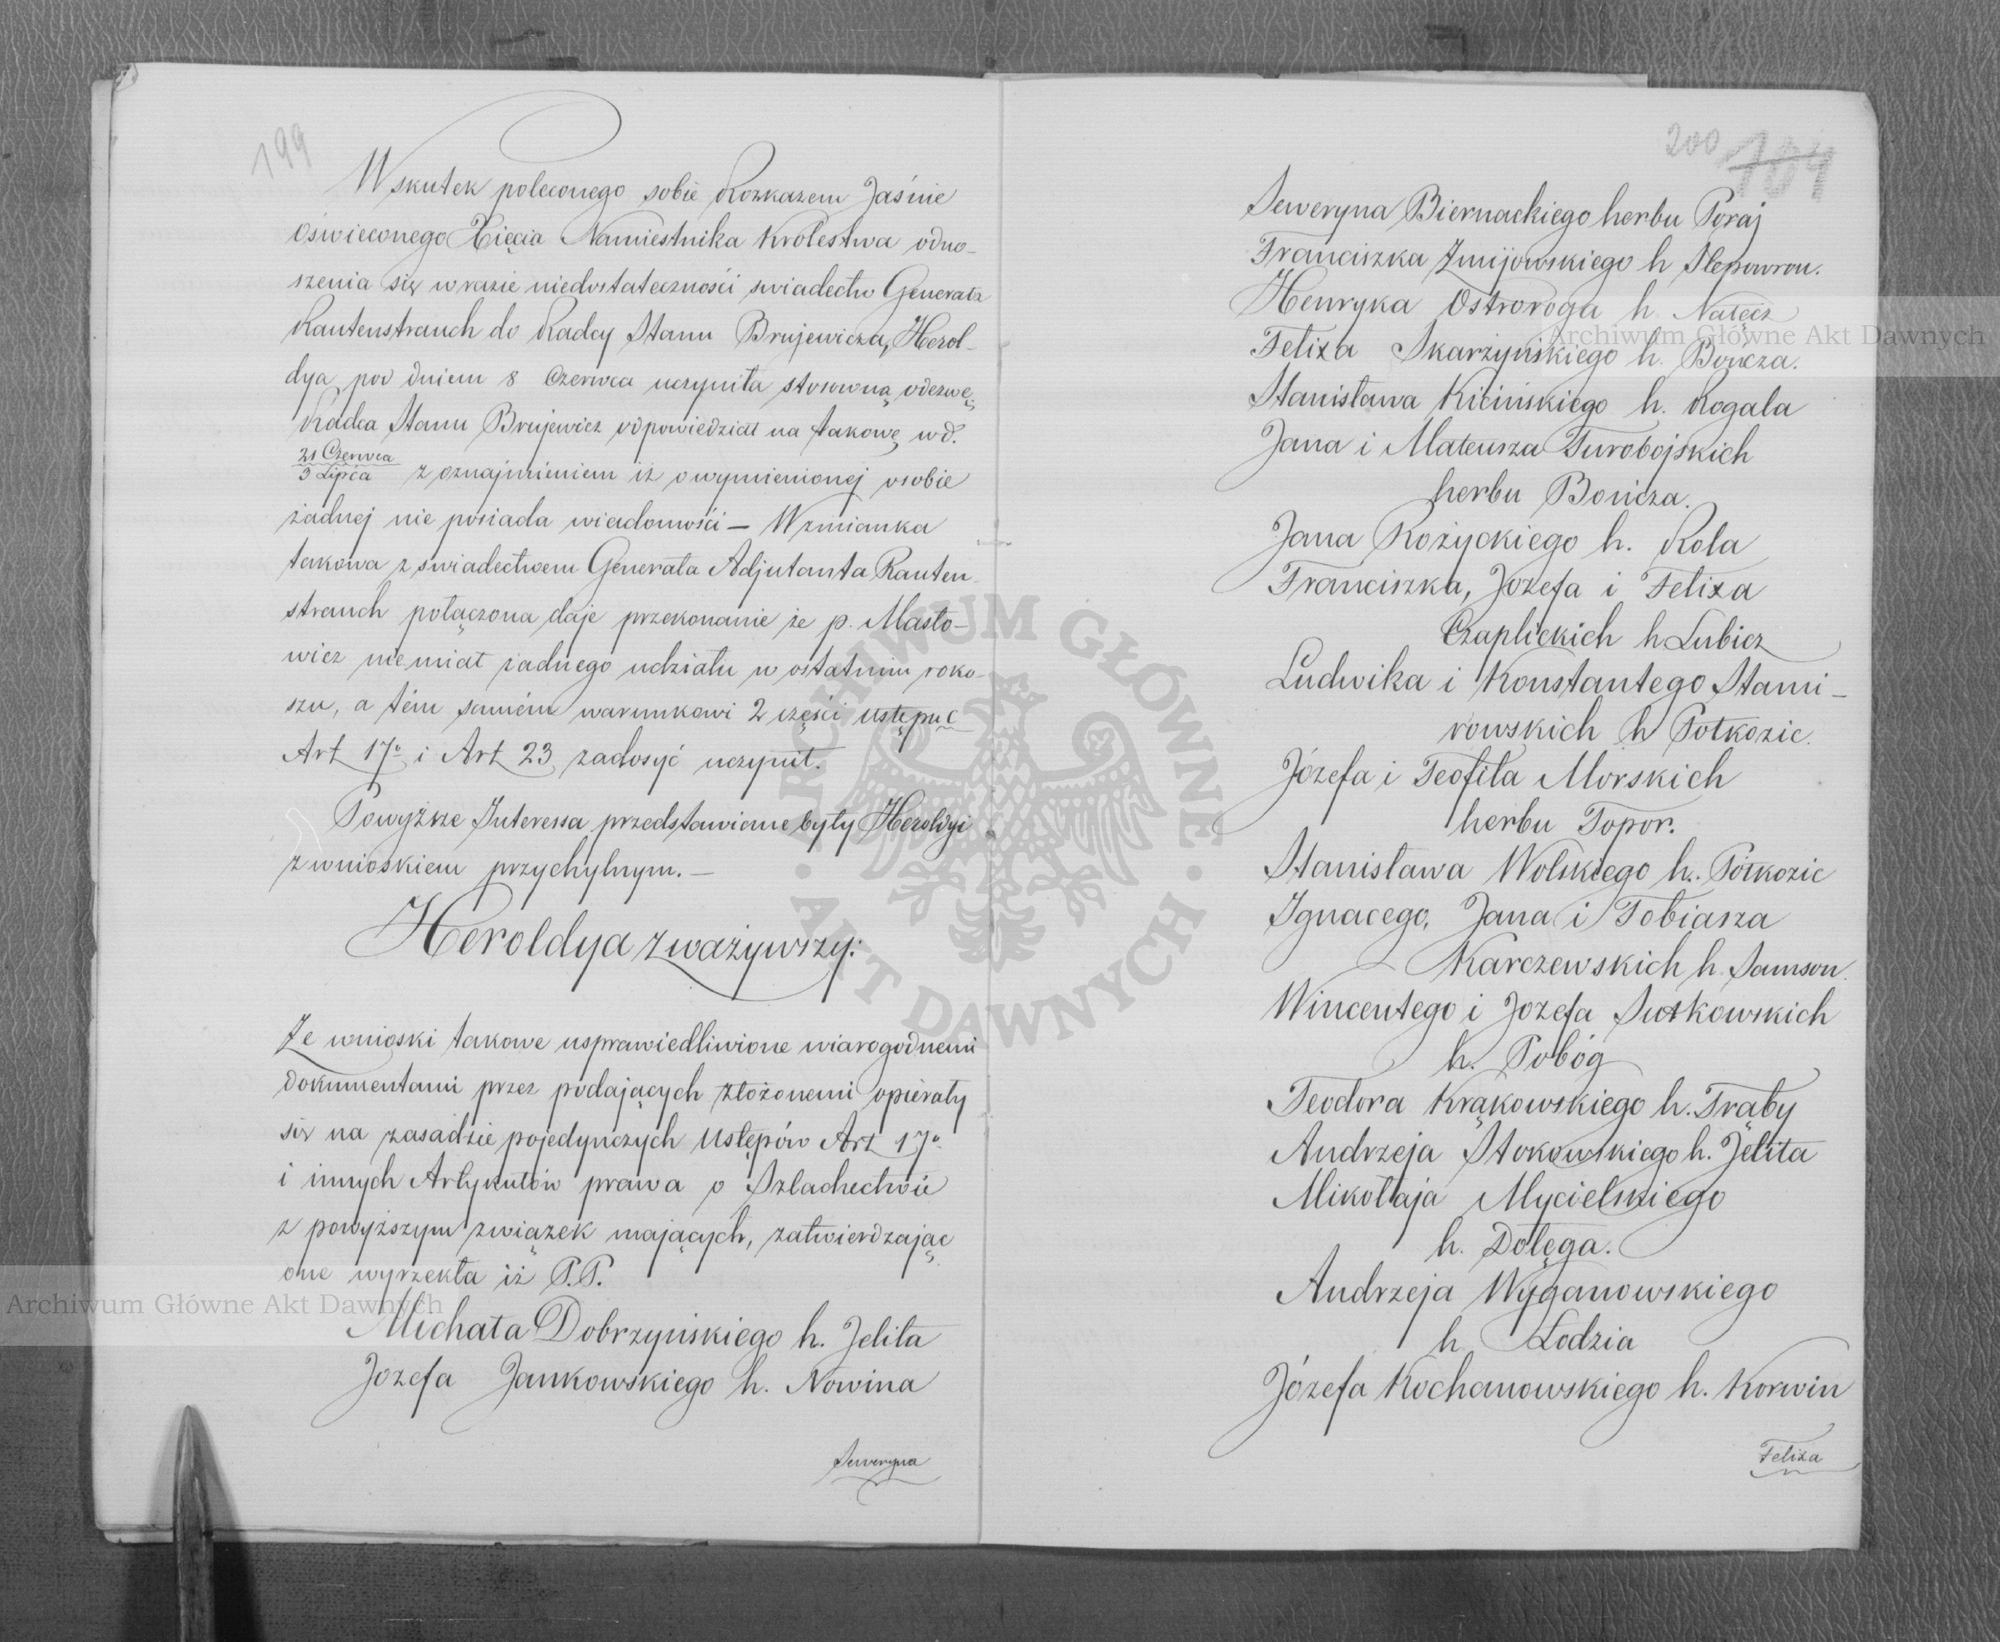 199
Wskutek poleconego sobie Rozkazem Jaśnie
Oświeconego Xięcia Namiestnika Królestwa odno-
szenia się w razie niedostateczności swiadectw Generała
Rautenstrauch do Radcy Stanu Brujewicza, Herol-
dya pod dniem 8 Czerwca uczyniła stosowną odezwę.
Radca Stanu Brujewicz odpowiedział na takowę w d.
21 Czerwca
3 Lipca z oznajmieniem iż o wymienionej osobie
żadnej nie posiada wiadomości — Wzmianka
takowa z swiadectwem Generała Adjutanta Rauten-
strauch połączona daje przekonanie że p. Masło-
wicz niemiał żadnego udziału w ostatnim roko-
szu, a tém samém warunkowi 2 części ustępu C
Art 17° i Art 23 zadosyć uczynił.
Powyższe Interessa przedstawione były Heroldyi
z wnioskiem przychylnym. —
Heroldya zważywszy:
Że wnioski takowe usprawiedliwione wiarogodnemi
dokumentami przez podających złożonemi opierały
się na zasadzie pojedyńczych Ustępów Art 17°
i innych Artykułów prawa o Szlachectwie
z powyższym związek mających, zatwierdzając
one wyrzekła iż P.P.
Michała Dobrzyńskiego h. Jelita
Jozefa Jankowskiego h. Nowina
Seweryna
200 104
Seweryna Biernackiego herbu Poraj
Franciszka Żmijowskiego h Slepowron.
Henryka Ostroroga h Nałęcz
Felixa Skarżyńskiego h. Bończa.
Stanisława Kicińskiego h. Rogala
Jana i Mateusza Turobojskich
herbu Bończa.
Jana Rożyckiego h. Rola
Franciszka, Jozefa i Felixa
Czaplickich h Lubicz
Ludwika i Konstantego Stami-
rowskich h Półkozic.
Józefa i Teofila Morskich
herbu Topor.
Stanisława Wolskiego h. Półkozic
Ignacego, Jana i Tobiasza
Karczewskich h. Samson.
Wincentego i Jozefa Sułkowskich
h. Pobóg
Teodora Krąkowskiego h. Trąby
Andrzeja Stokowskiego h. Jelita
Mikołaja Mycielskiego
h. Dołęga.
Andrzeja Wyganowskiego
h Łodzia
Józefa Kochanowskiego h. Korwin
Felixa
Archiwum Główne Akt Dawnych
Archiwum Główne Akt Dawnych
ARCHIWUM GŁÓWNE · AKT DAWNYCH ·